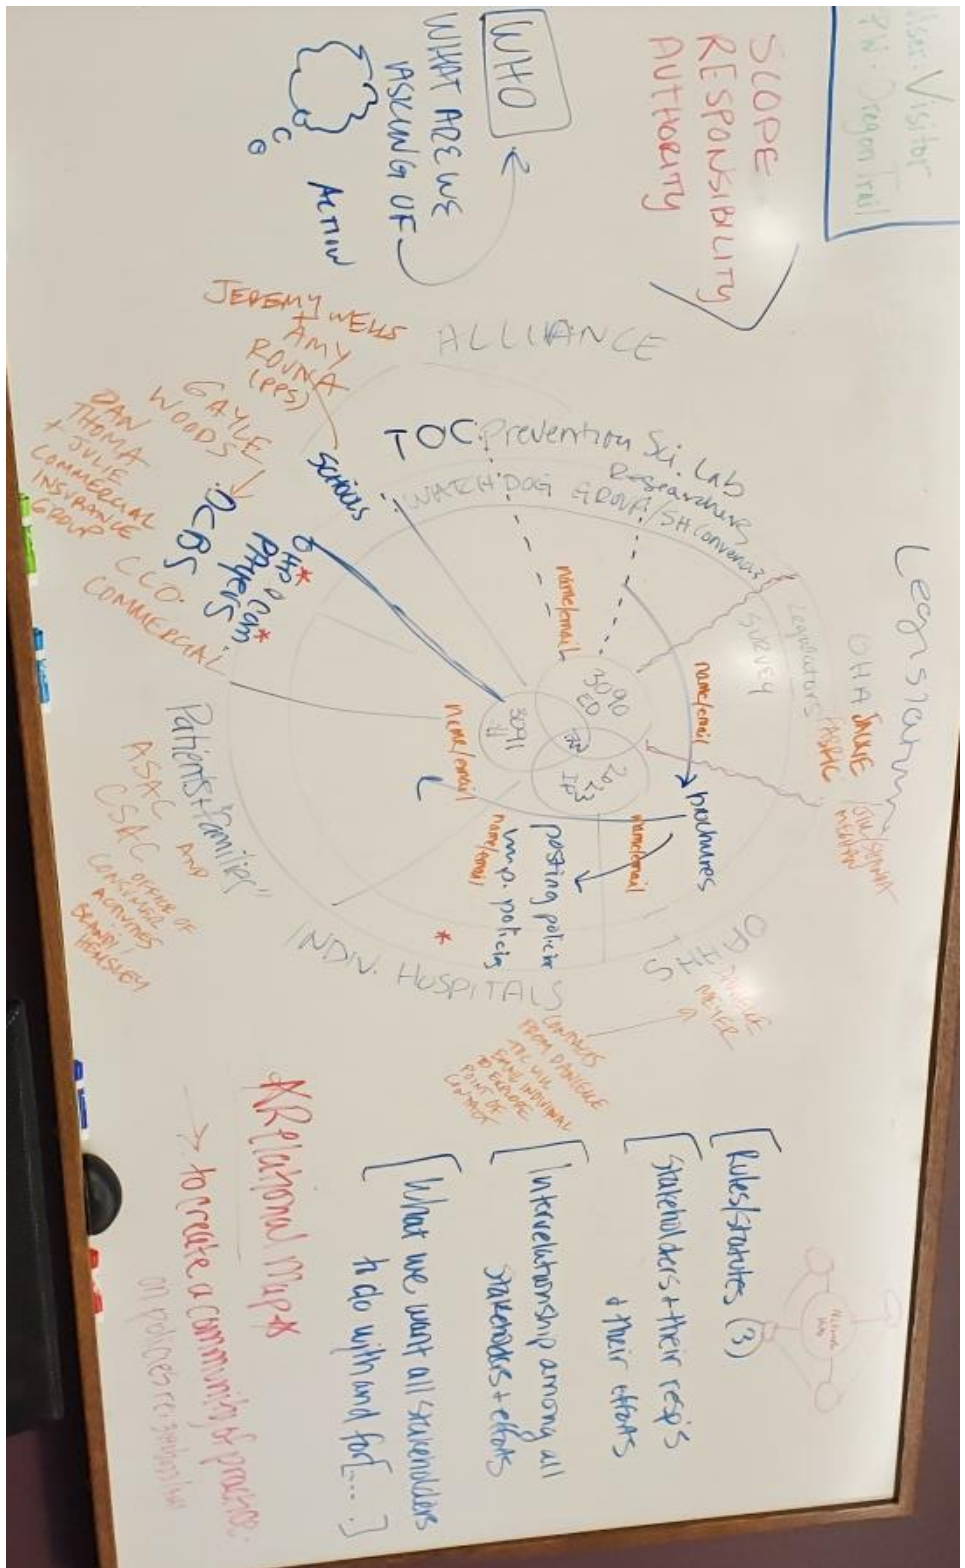 User: Visitor
PW: Oregon Trail
SCOPE
RESPONSIBILITY
AUTHORITY
WHO
WHAT ARE WE
ASKING OF
ACTION
ALLIANCE
JEREMY WELLS
+
AMY
ROUNA
(PPS)
GAYLE
WOODS
DAN
THOMA
+ JULIE
COMMERCIAL
INSURANCE
GROUP
SCHOOLS
TOC:
Prevention Sci. Lab
Researchers
WATCHDOG GROUP/SH Convenor
OCBS
Payers
CCO
COMMERCIAL
Legislature
Legislators
SURVEY
OHA
name/email
name/email
name/email
name/email
name/email
3090
ED
3091
IP
brochures
posting policies
imp. policies
*
*
*
Patients + "families"
ASAC
AND
CSAC
OFFICE OF
CONSUMER
ACTIVITIES
BRANDY
HEMSLEY
INDIV. HOSPITALS
OAHHS
DANIELLE
MEYER
CONTACTS
FROM DANIELLE
POINT OF
CONTACT
Rules/statutes (3)
Stakeholders + their resp's
+ their efforts
Interrelationship among all
stakeholders + efforts
What we want all stakeholders
to do with and for [....]
*Relational Map*
→ to create a community of practice
on policies